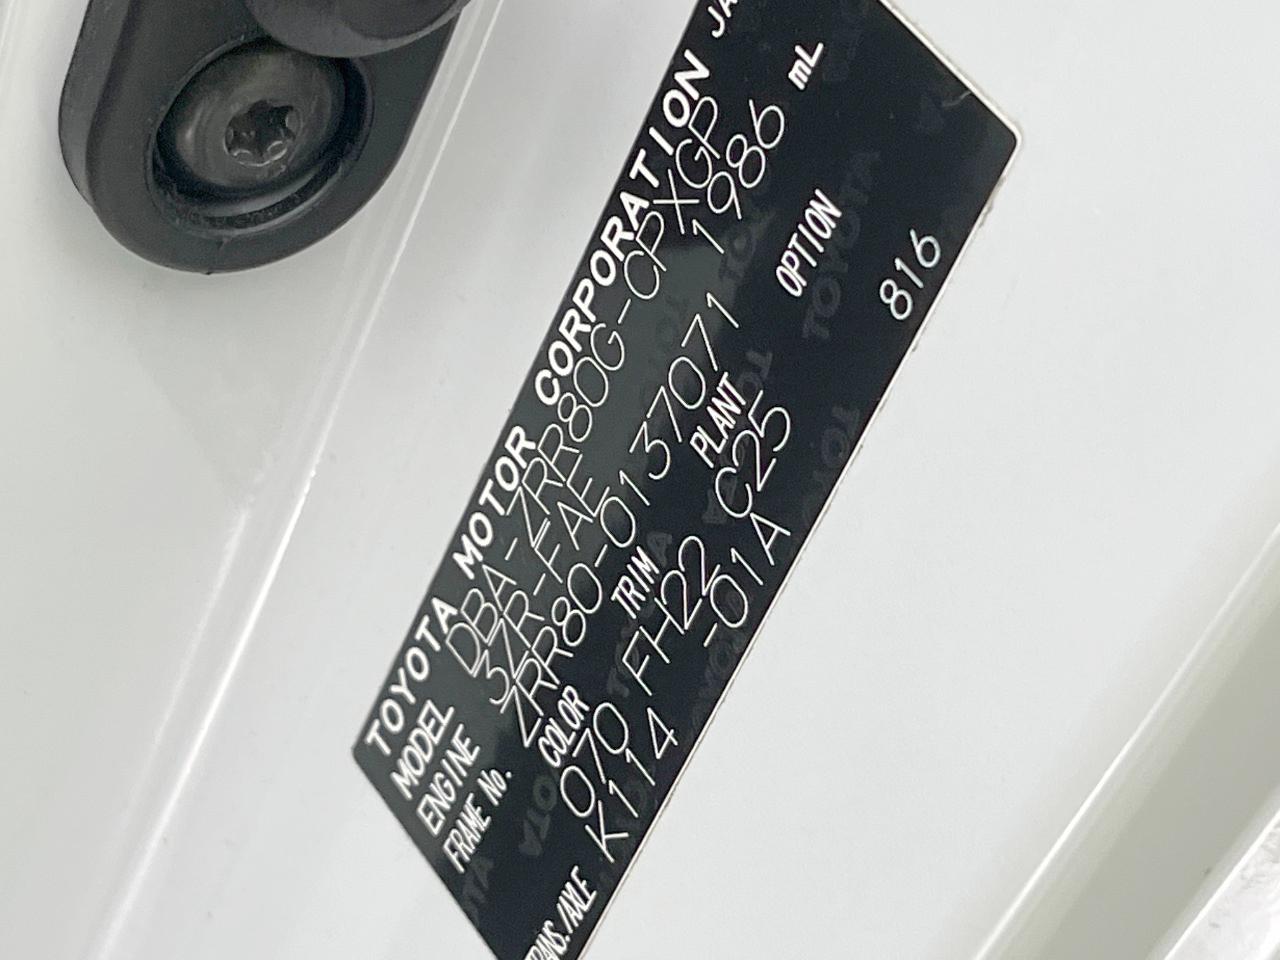 TOYOTA MOTOR CORPORATION JA
MODEL DBA-ZRR80G-CPXGP
ENGINE 3ZR-FAE 1986 mL
FRAME No. ZRR80-0137071
COLOR TRIM PLANT OPTION
070 FH22 C25 816
TRANS./AXLE K114 -01A